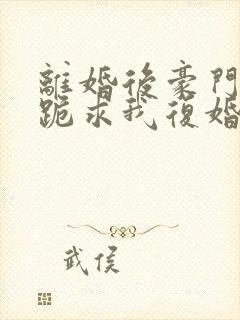 離婚後豪門
跪求我復婚
武侯